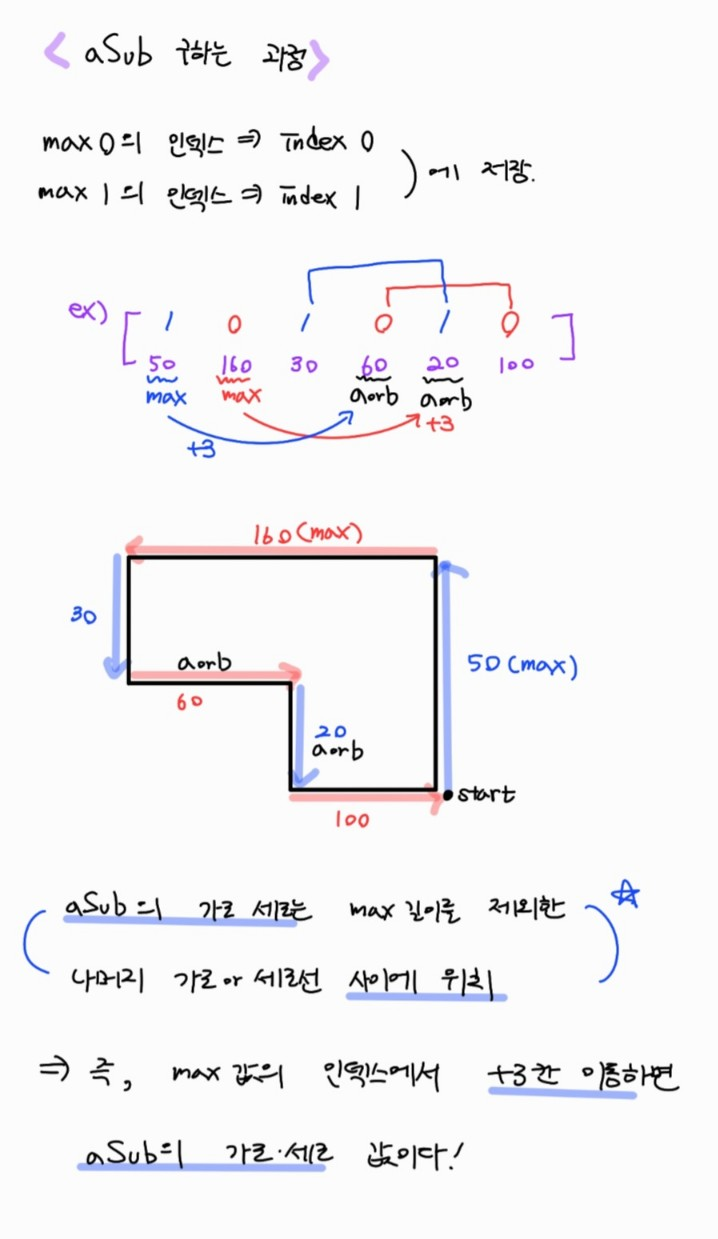 < aSub 구하는 과정 >
max 0의 인덱스 ⇒ index 0
max 1의 인덱스 ⇒ index 1
) 에 저장.
ex) [ 1 0 1 0 1 0 ]
50 160 30 60 20 100
max max aorb aorb
+3 +3
160(max)
30
aorb
60
50(max)
20
aorb
start
100
aSub의 가로 세로는 max 길이를 제외한 ☆
( 나머지 가로 or 세로선 사이에 위치 )
⇒ 즉, max 값의 인덱스에서 +3칸 이동하면
aSub의 가로·세로 값이다!